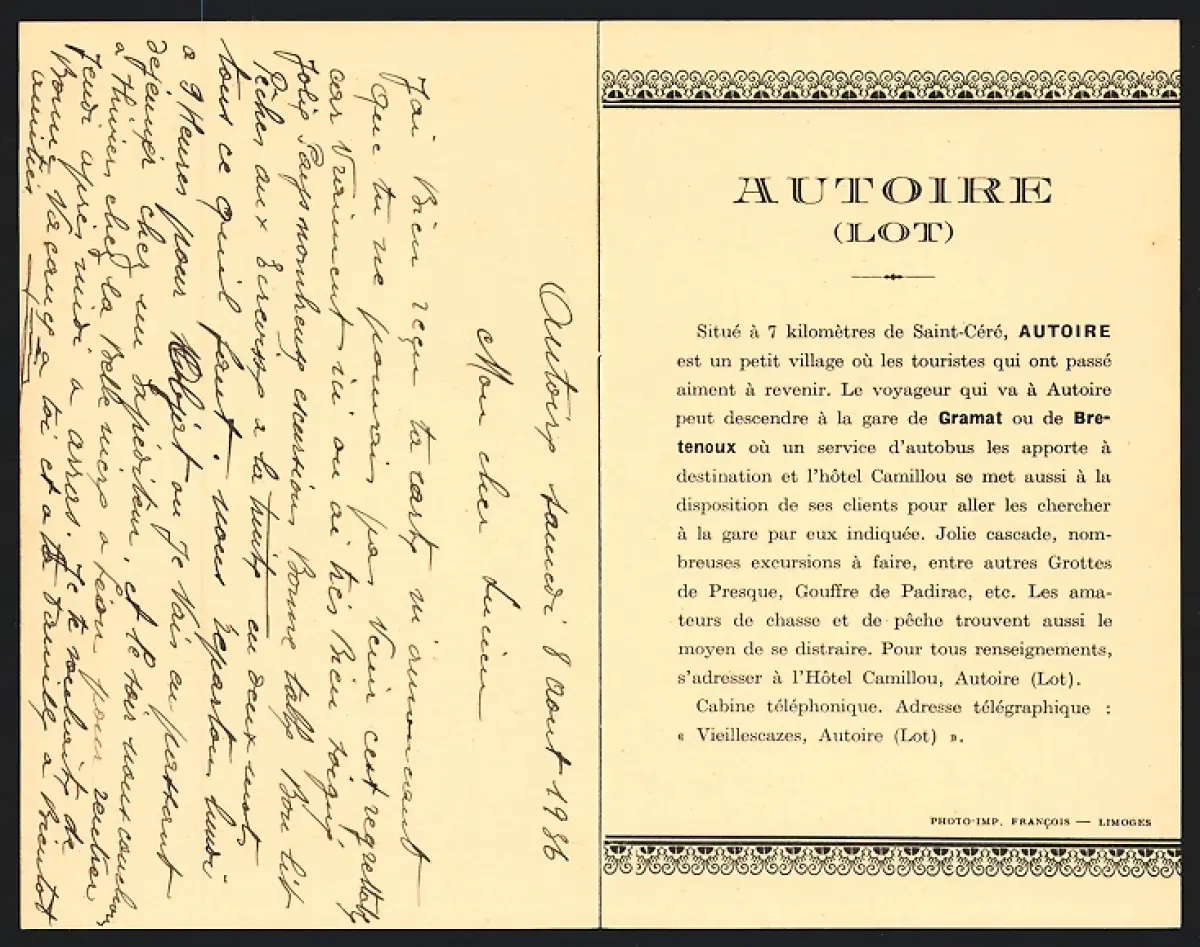 Autoire samedi 8 aout 1936
Mon cher Lucien
J'ai Bien reçu ta carte m'annonçant
Que tu ne pouvais pas venir c'est regrettable
car vraiment ici on ai très Bien soigné,
Jolie Pays nombreuse excursions Bonne table Bon lit
Pêches aux Ecrevisse a la truite en deux mots
tous ce qu'il faut. nous repartons lundi
a 9 Heures pour où Je vais en passant
déjeuner chez un Expéditeur, et le soir nous couchons
a Thiviers chez la Belle mère a Léon pour rentrer
Jeudi après midi a arras. Je te souhaite de
Bonne Vacances a toi et a ta famille a Bientot
amitiés
AUTOIRE
(LOT)
Situé à 7 kilomètres de Saint-Céré, AUTOIRE
est un petit village où les touristes qui ont passé
aiment à revenir. Le voyageur qui va à Autoire
peut descendre à la gare de Gramat ou de Bre-
tenoux où un service d'autobus les apporte à
destination et l'hôtel Camillou se met aussi à la
disposition de ses clients pour aller les chercher
à la gare par eux indiquée. Jolie cascade, nom-
breuses excursions à faire, entre autres Grottes
de Presque, Gouffre de Padirac, etc. Les ama-
teurs de chasse et de pêche trouvent aussi le
moyen de se distraire. Pour tous renseignements,
s'adresser à l'Hôtel Camillou, Autoire (Lot).
Cabine téléphonique. Adresse télégraphique :
« Vieillescazes, Autoire (Lot) ».
PHOTO-IMP. FRANÇOIS — LIMOGES